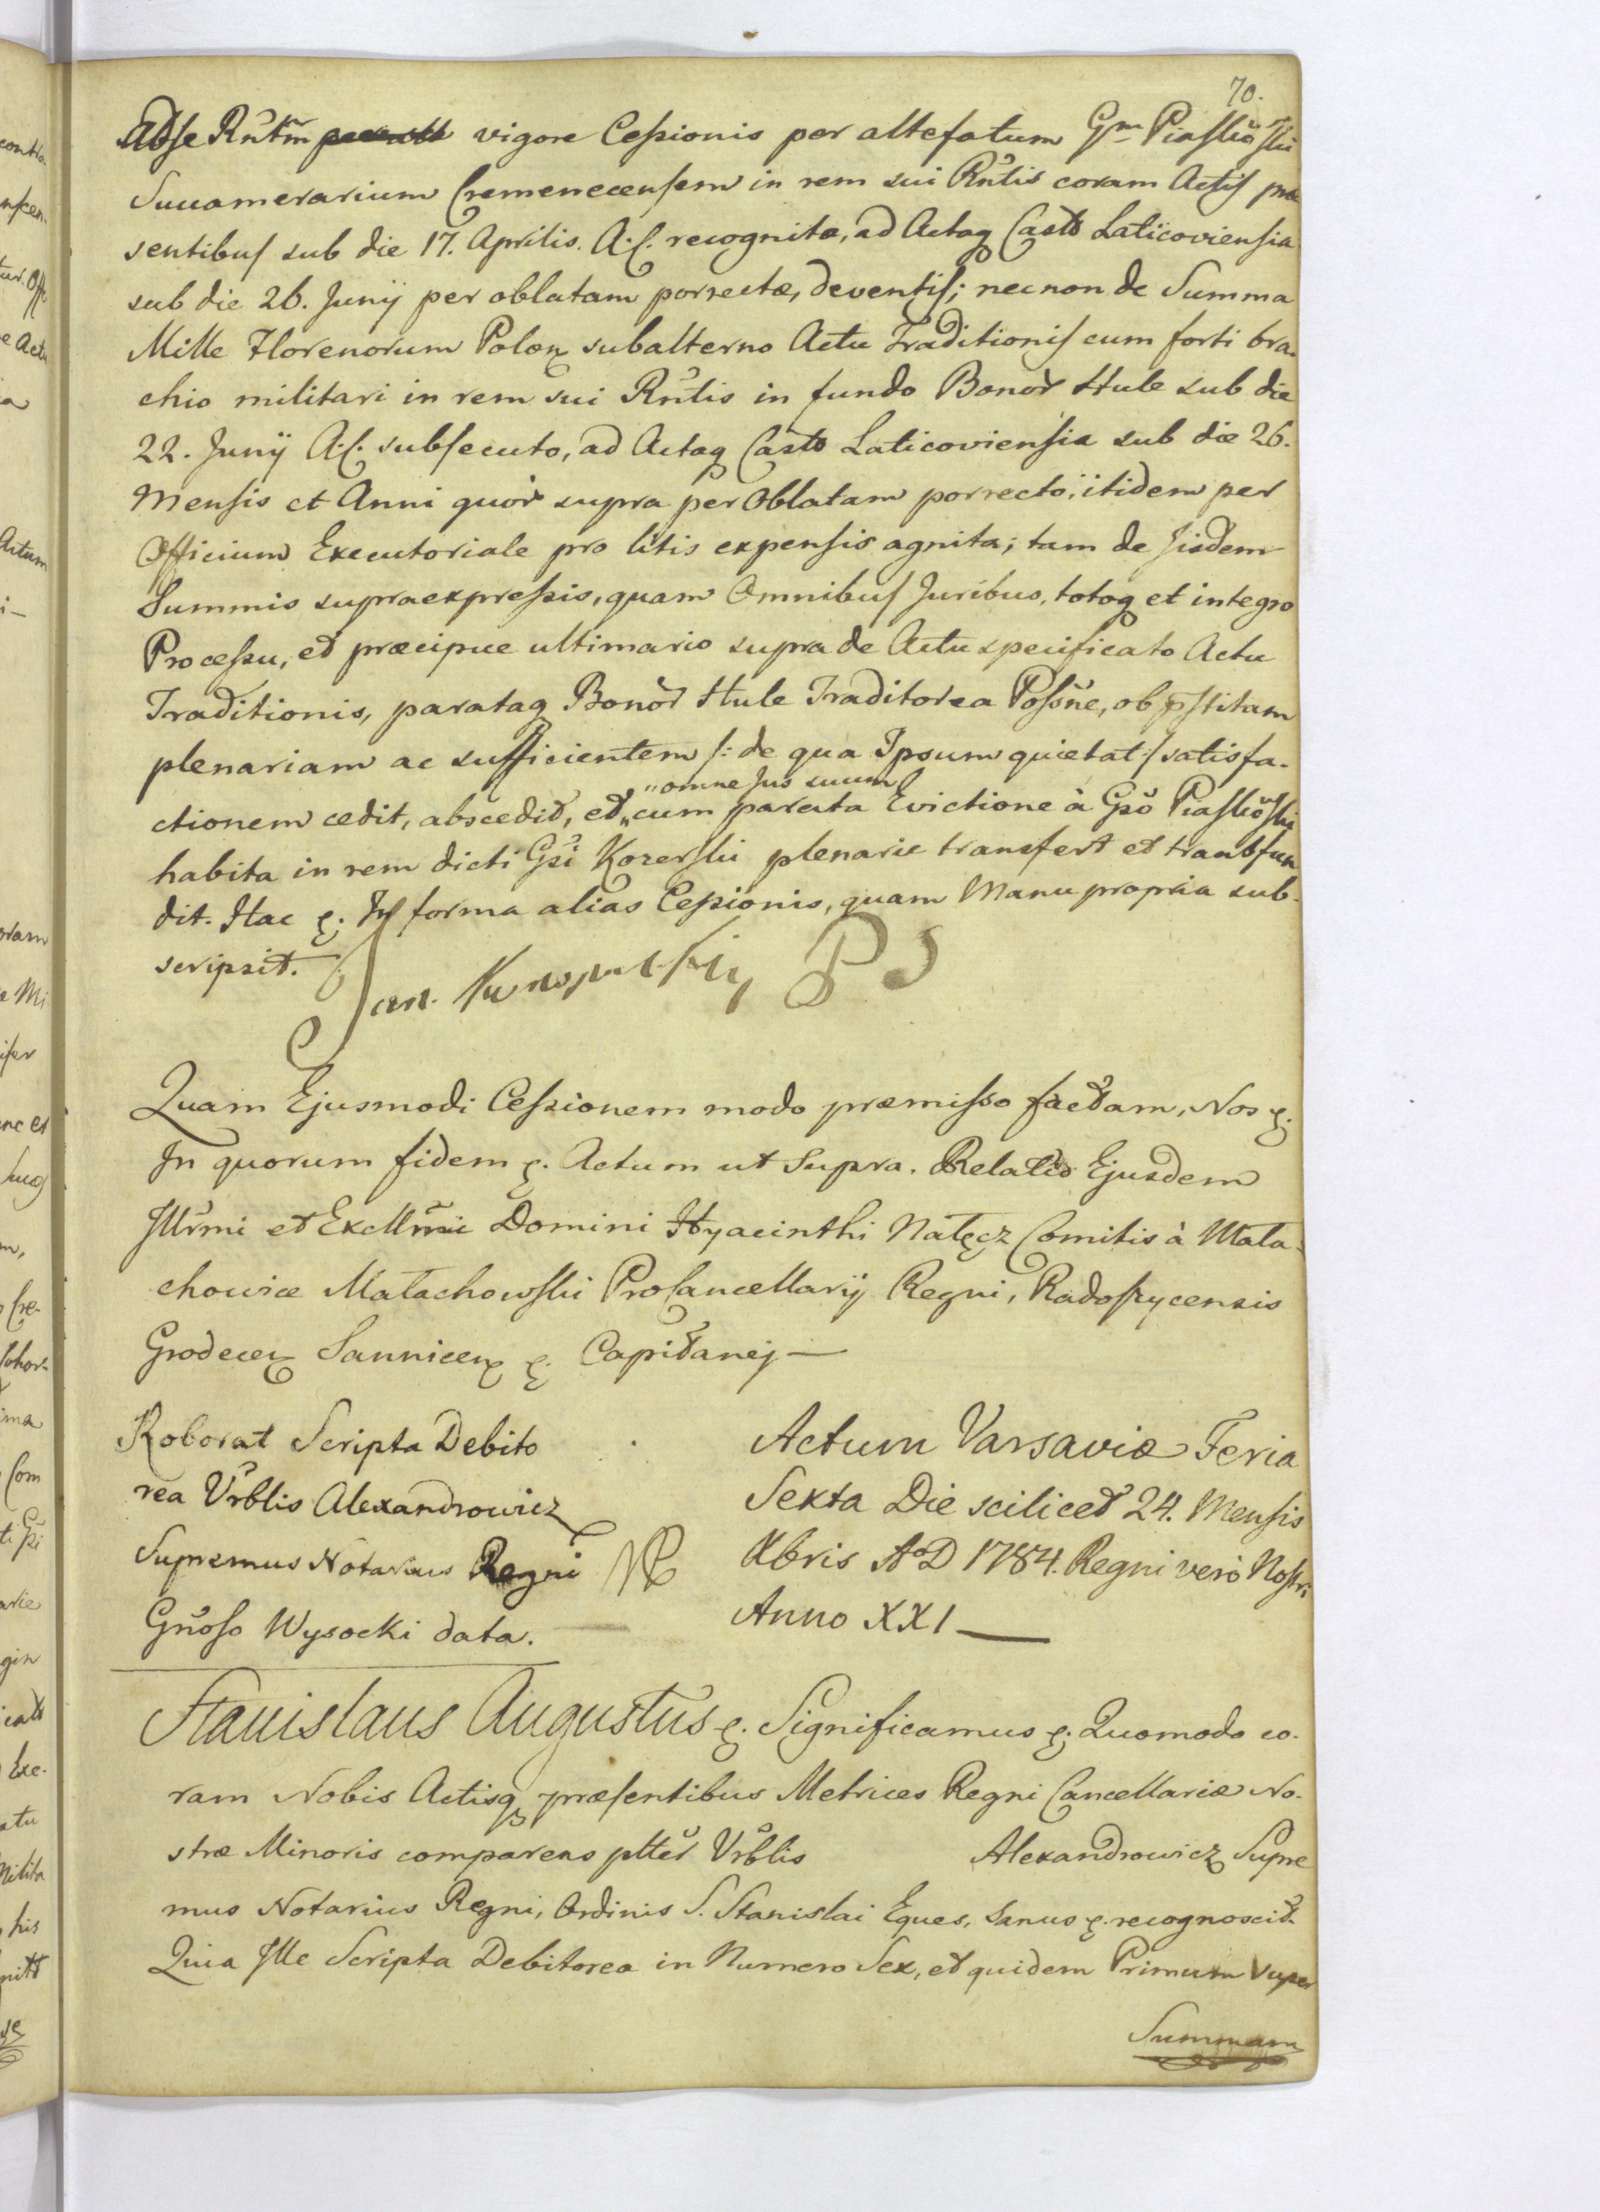 70.
adse Rñtm vigore Cessionis per altefatum Gm Piaskowski
Succamerarium Cremenecensem in rem sui Rñtis coram Actis præ
sentibus sub die 17. Aprilis. A. C. recognita, ad Actaq Casts Laticoviensia
sub die 26. Junÿ per oblatam porrectæ, deventis; necnon de Summa
Mille Florenorum Polonq subalterno Actu Traditionis cum forti bra-
chio militari in rem sui Rñtis in fundo Bonor Hule sub die
22. Junÿ A. C. subsecuto, ad Actaq Casts Laticoviensia sub die 26.
Mensis et Anni quor supra per Oblatam porrecto, itidem per
Officium Executoriale pro litis expensis agnita; tam de Jisdem
Summis supraexpressis, quam Omnibus Juribus, totoq et integro
Processu, et præcipue ultimario supra de Actu specificato Actu
Traditionis, parataq Bonor Hule Traditorea Possñe, ob pstitam
plenariam ac sufficientem /: de qua Ipsum quietat :/ satisfa-
"omne Jus suum
ctionem cedit, abscedit, et „cum parata Evictione à Gso Piaskowski
habita in rem dicti Gsi Kozerski plenarie transfert et transfun
dit. Hac forma alias Cessionis, quam Manu propria sub-
scripsit. Jan. PS
Quam Ejusmodi Cessionem modo præmisso factam, Nos ꝛ.
In quorum fidem ꝛ. Actum ut Supra. Relatio Ejusdem
Jllrmi et Excllrmi Domini Hyacinthi Nałęcz Comitis à Mała-
chowice Małachowski ProCancellarÿ Regni, Radoszycensis
Grodecen Sannicen ꝛ. Capitanej —
Roborat Scripta Debito
rea Urblis Alexandrowicz
Supremus Notarius Regni
Gñoso Wysocki data.
Actum Varsaviæ Feria
Sexta Die scilicet 24. Mensis
Xbris AoD 1784. Regni vero Nostri
Anno XXI —
Stanislaus Augustus ꝛ. Significamus ꝛ. Quomodo co-
ram Nobis Actisq præsentibus Metrices Regni Cancellariæ No-
stræ Minoris comparens plter Urblis Alexandrowicz Supre
mus Notarius Regni, Ordinis S. Stanislai Eques, Sanus ꝛ. recognoscit.
Quia Jlle Scripta Debitorea in Numero Sex, et quidem Primum super
Summam